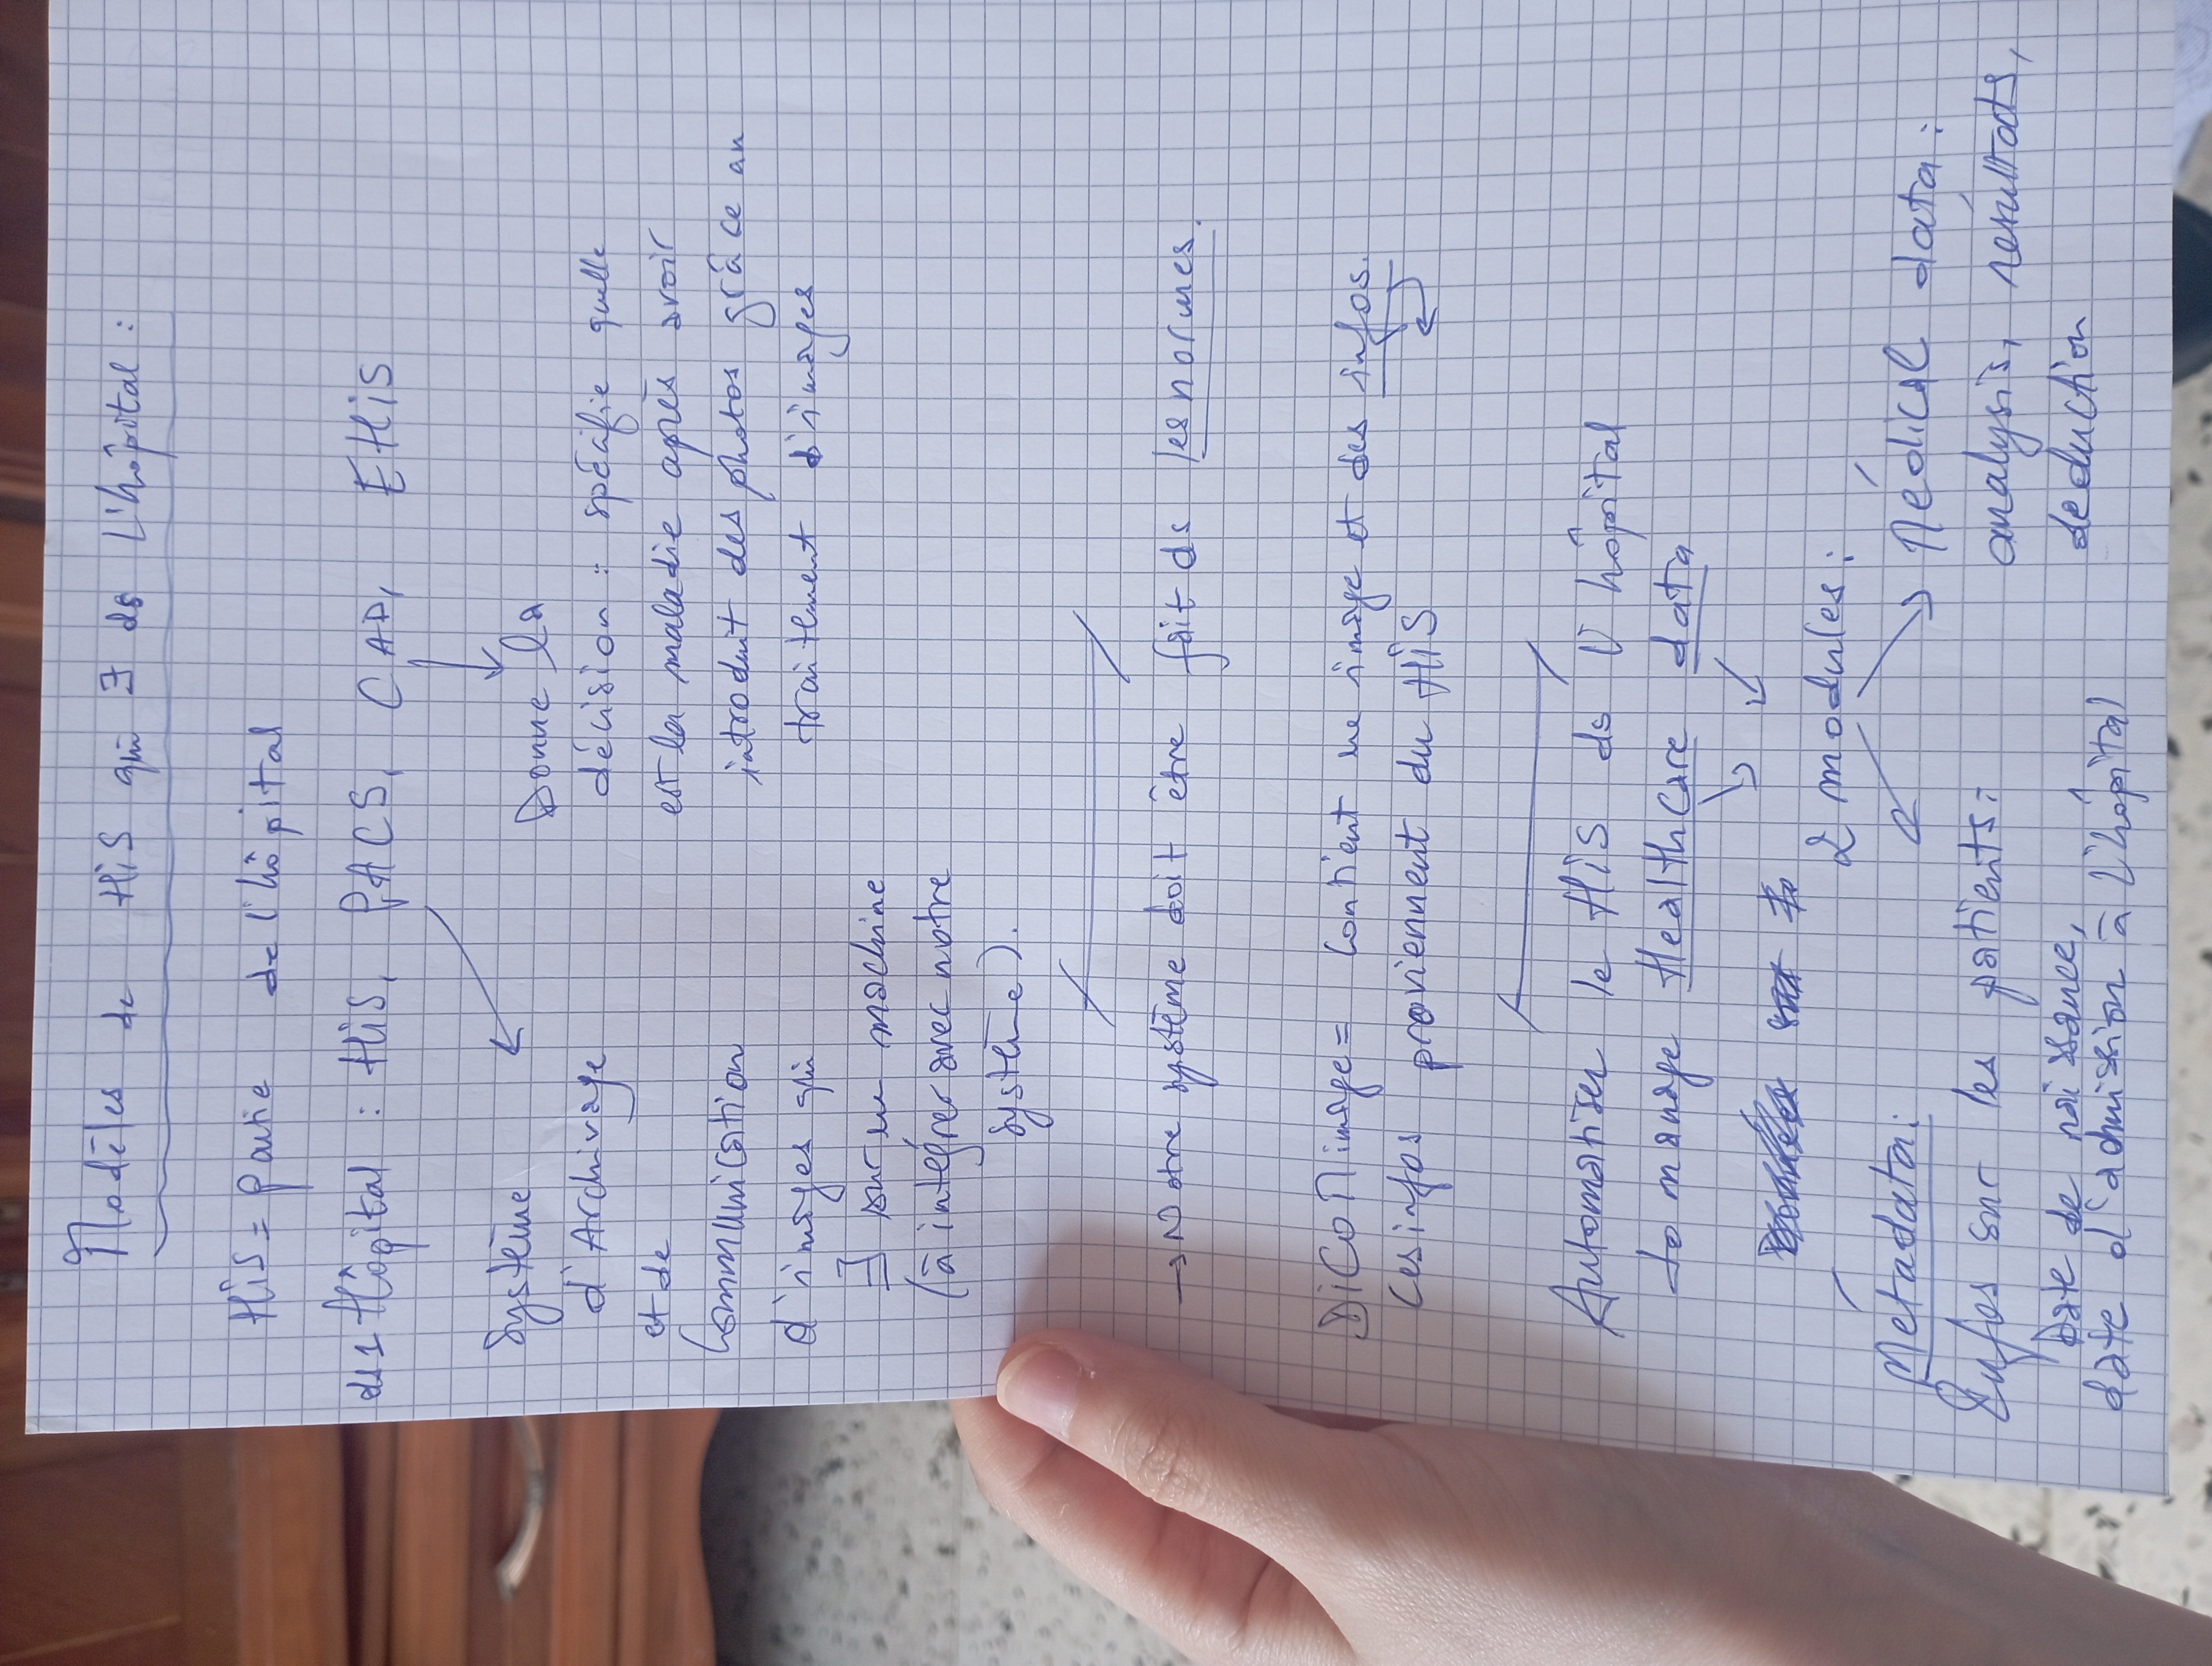 Modèles de HiS qui ∃ ds L'hôpital :
HiS = partie de l'hôpital
ds 1 Hôpital : HiS, PACS, CAD, EHiS
Système
d'Archivage
et de
Communication
d'images qui
∃ sur une machine
(à intégrer avec notre
système).
Donne la
décision : spécifie quelle
est la maladie après avoir
introduit des photos grâce au
traitement d'images
→ Notre système doit être fait ds les normes.
DiCOM image = Contient une image et des infos.
Ces infos proviennent du HiS
Automatiser le HiS ds l'hôpital
to manage Healthcare data
2 modules :
Metadata :
Infos sur les patients :
Date de naissance,
date d'admission à l'hôpital
Médical data :
analysis, résultats,
deduction